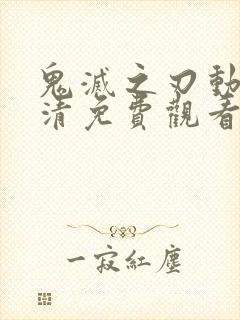 鬼滅之刃動
清免費觀看
一寂紅塵